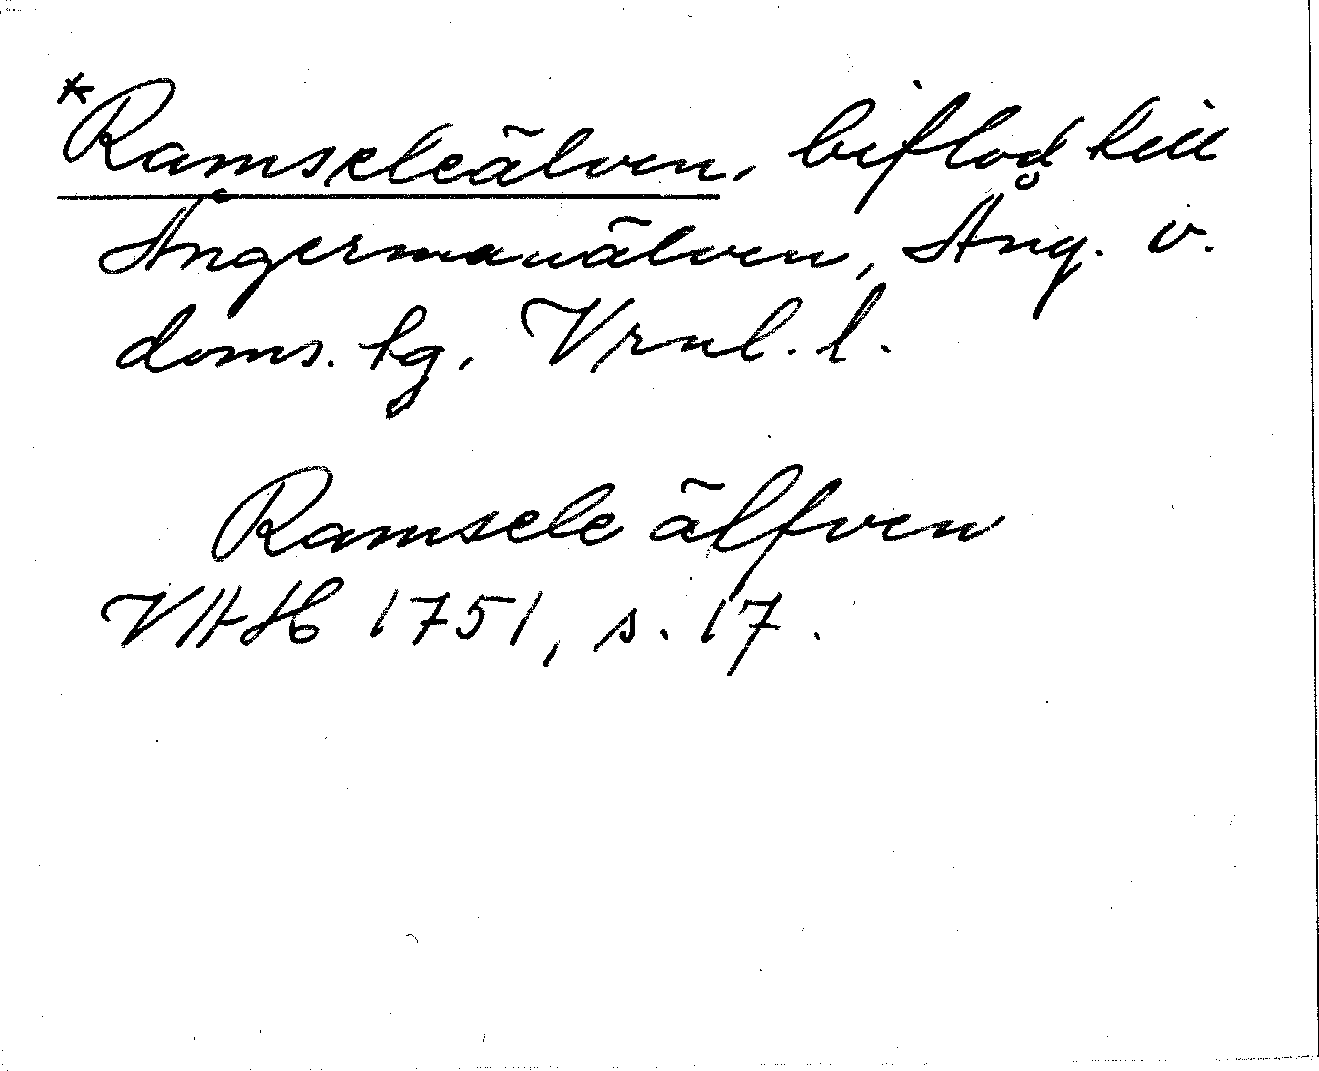 *Ramseleälven, biflod till
Ångermanälven, Ång. v.
doms. hg, Vrnl. l.
Ramsele älfven
VHAH 1751, s. 17.